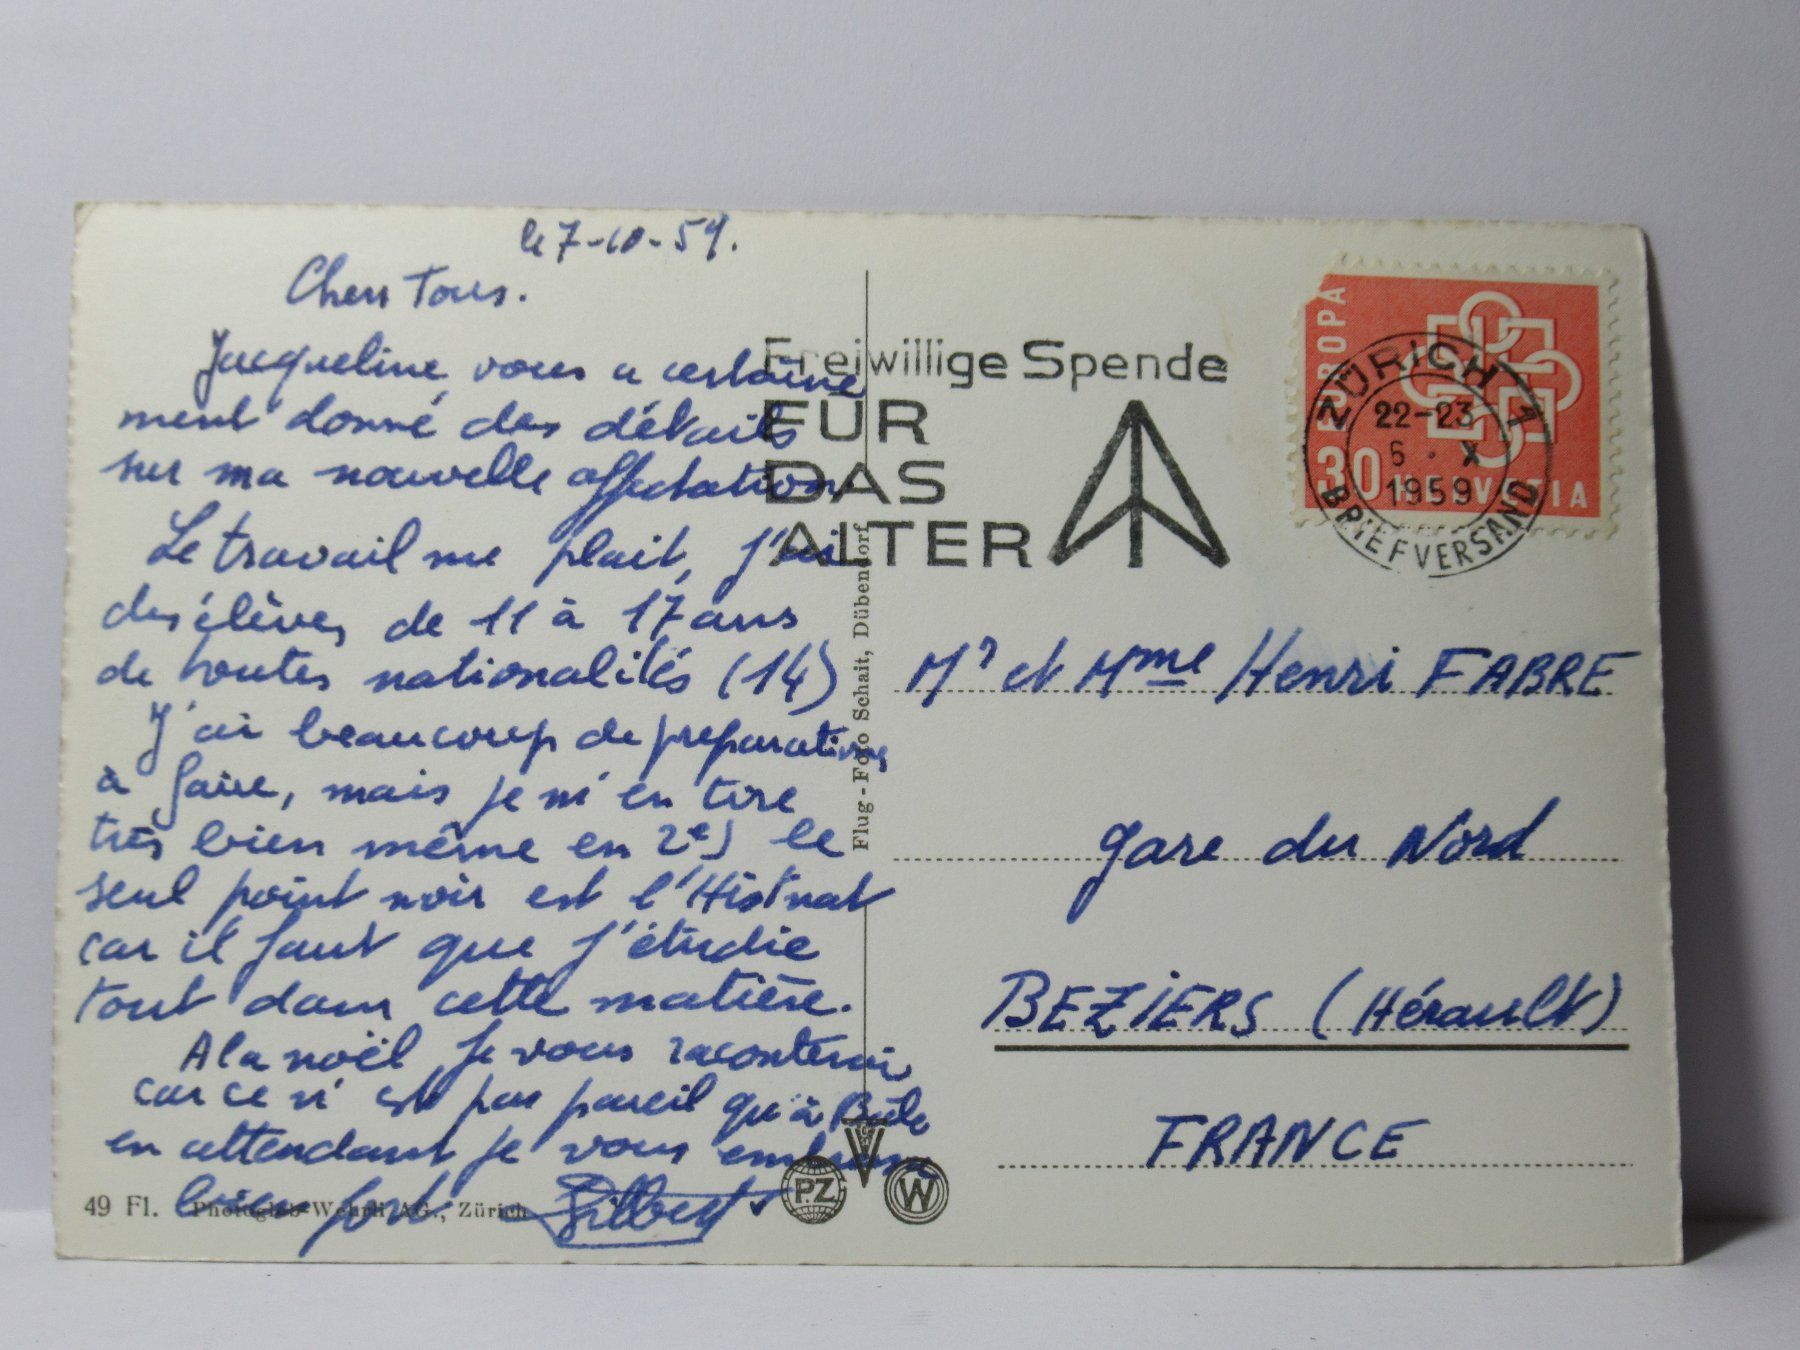 le 7-10-59.
Chers Tous.
Jacqueline vous a certaine
ment donné des détails
sur ma nouvelle affectation
Le travail me plait, j'ai
des élèves de 11 à 17 ans
de toutes nationalités (14)
J'ai beaucoup de preparations
à faire, mais je m'en tire
très bien même en 2e, le
seul point noir est l'Hist nat
car il faut que j'étudie
tout dans cette matière.
A la noël je vous raconterai
car ce n'est pas pareil qu'à Bâle
en attendant je vous embrasse
bien fort Gilbert
49 Fl. Photoglob-Wehrli AG., Zürich
Flug-Foto Schait, Dübendorf
PZ
W
Freiwillige Spende
FÜR
DAS
ALTER
EUROPA
30 HELVETIA
ZÜRICH 1
22-23
6 . X
1959
BRIEFVERSAND
Mr et Mme Henri FABRE
gare du Nord
BEZIERS (Hérault)
FRANCE